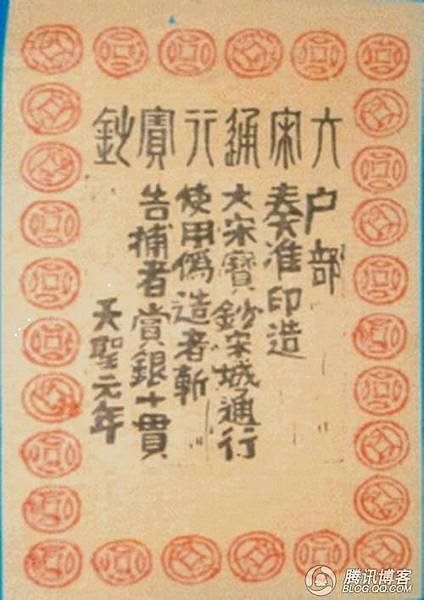 大宋通行寶鈔
户部
奏准印造
大宋寶鈔宋城通行
使用僞造者斬
告捕者賞銀十貫
天聖元年
腾讯博客
BLOG.QQ.COM